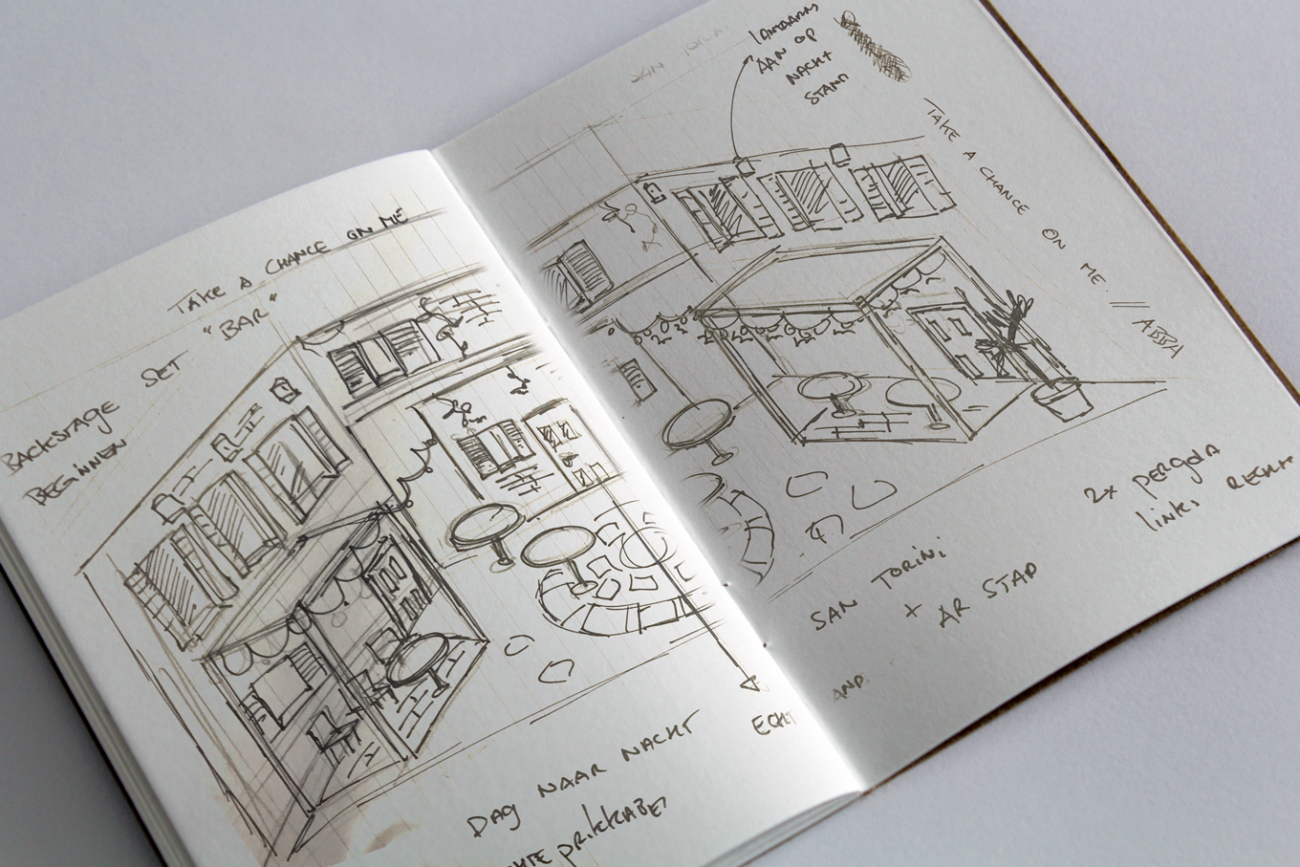 TAKE A CHANCE ON ME
SET "BAR"
BACKSTAGE
BEGINNEN
DAG NAAR NACHT
prikkabel
ECHT
AAN OP
NACHT
STAND
TAKE A CHANCE ON ME. // ABBA
2x pergola
links RECHTS
SAN TORINI
+ AR STAD
AND